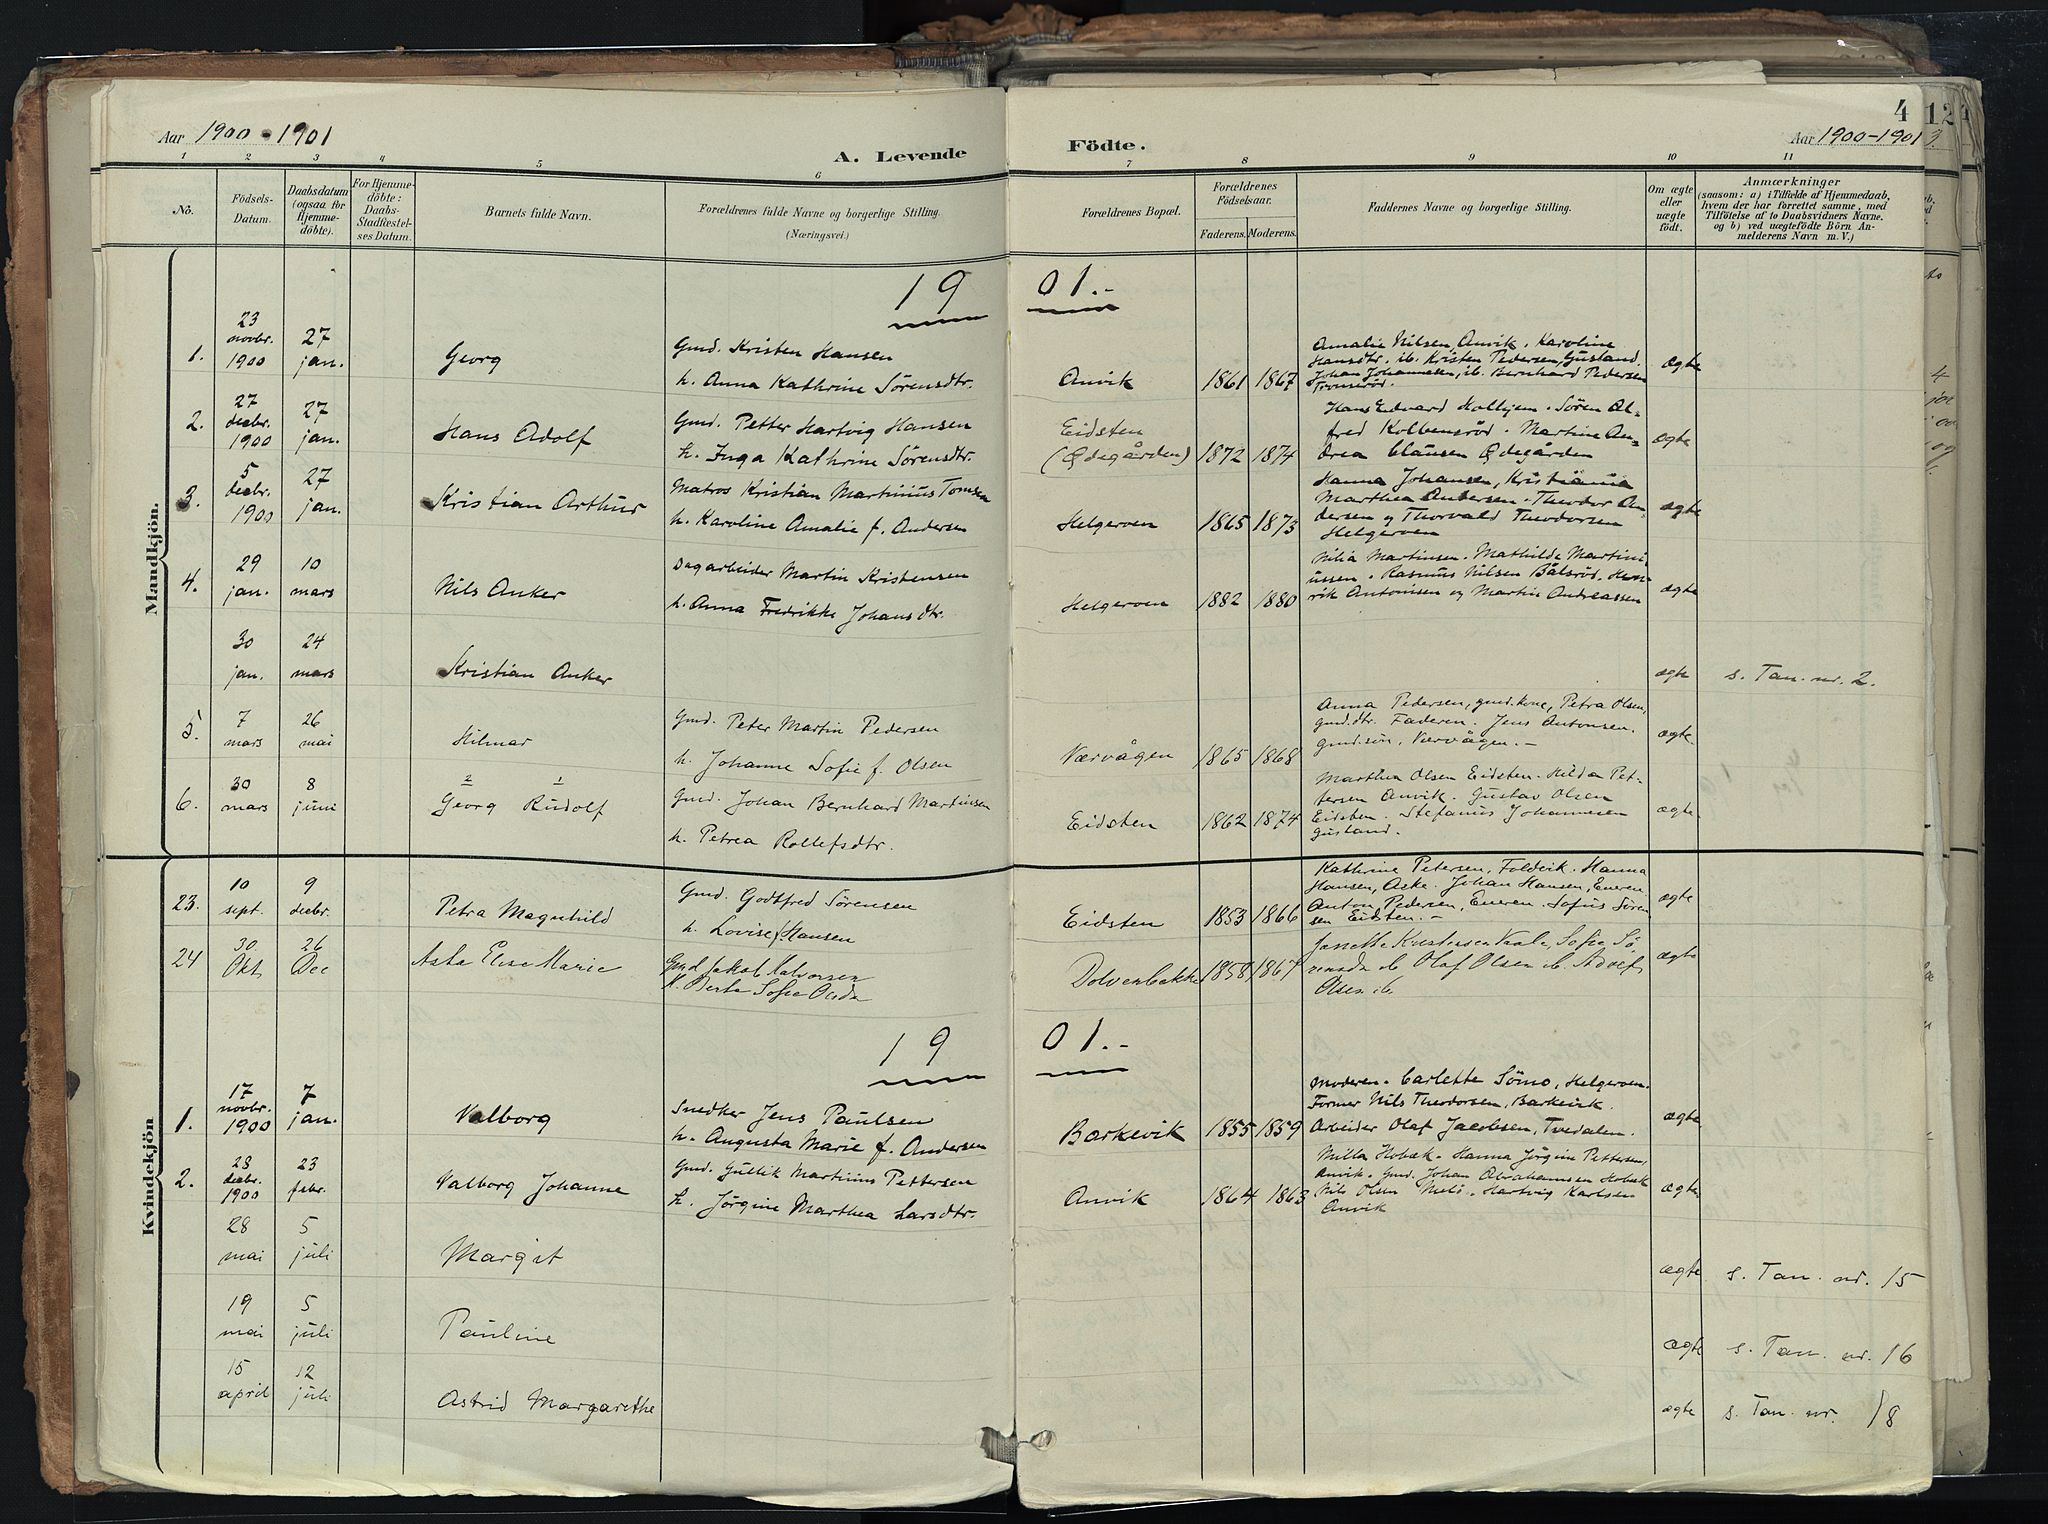 Aar 1900-1901
A. Levende
Födte.
Aar 1900-1901
4
12
3.
1 2 3 4 5 6 7 8 9 10 11
No.
Födsels-
Datum.
Daabsdatum
(ogsaa for
Hjemme-
döbte).
For Hjemme-
döbte:
Daabs-
Stadfæstel-
ses Datum.
Barnets fulde Navn.
Forældrenes fulde Navne og borgerlige Stilling.
(Næringsvei.)
Forældrenes Bopæl.
Forældrenes
Födselsaar.
Faderens. Moderens.
Faddernes Navne og borgerlige Stilling.
Om ægte
eller
uægte
födt.
Anmærkninger
(saasom: a) i Tilfælde af Hjemmedaab,
hvem der har forrettet samme, med
Tilföielse af to Daabsvidners Navne.
og b) ved uægtefödte Börn An-
melderens Navn m. V.)
Mandkjön.
19 01.-
1.
23
novbr.
1900
27
jan.
Georg
Gmd. Kristen Hansen
h. Anna Kathrine Sörensdtr.
Anvik
1861 1867
Amalie Nilsen, Anvik. Karoline
Hansdtr. ib. Kristen Pedersen, Gusland.
Johan Johannesen, ib. Bernhard Pedersen
Tronsröd.
ægte
2.
27
decbr.
1900
27
jan.
Hans Adolf
Gmd. Petter Hartvig Hansen
h. Inga Kathrine Sörensdtr.
Eidsten
(Ødegården)
1872 1874
Hans Edvard Holhjem. Sören Al-
fred Kolbensröd. Martine An-
drea Clausen Ødegården
ægte
3.
5
decbr.
1900
27
jan.
Kristian Arthur
Matros Kristian Martinius Tomsen
h. Karoline Amalie f. Andersen
Helgeroen
1865 1873
Hanna Johansen, Kristiania
Marthea Andersen. Theodor An-
dersen og Thorvald Theodorsen
Helgeroen
ægte
4.
29
jan.
10
mars
Nils Anker
Dagarbeider Martin Kristensen
h. Anna Fredrikke Johansdtr.
Helgeroen
1882 1880
Nilia Martinsen. Mathilde Martini-
ussen. Rasmus Nilsen Bålsröd. Hen-
rik Antonisen og Martin Andreassen
ægte
30
jan.
24
mars
Kristian Anker
ægte
s. Tan. nr. 2.
5.
7
mars
26
mai
Hilmar
Gmd. Peter Martin Pedersen
h. Johanne Sofie f. Olsen
Værvågen
1865 1868
Anna Pedersen, gmd.kone, Petra Olsen,
gmd.dtr. Faderen. Jens Antonsen.
gmd.sön, Værvågen.-
ægte.
6.
30
mars
8
juni
2 1
Georg Rudolf
Gmd. Johan Bernhard Martinsen
h. Petrea Rollefsdtr.
Eidsten
1862 1874
Marthea Olsen Eidsten. Hilda Pet-
tersen Anvik. Gustav Olsen
Eidsten. Stefanus Johannesen
Gusland.
ægte.
Kvindekjön
23.
10
sept.
9
decbr.
Petra Magnhild
Gmd. Godtfred Sörensen
h. Lovise f. Hansen
Eidsten
1853 1866
Kathrine Petersen, Foldvik. Hanna
Hansen, Aske. Johan Hansen, Eneren
Anton Pedersen, Eneren. Sofus Sören
sen Eidsten.-
ægte
24
30
Okt
26
Dec
Asta Elise Marie
Gmd Jakob Halvorsen
h. Berte Sofie
Dolvenbakke
1858 1867
Olaf Olsen ib. Adolf
Olsen ib.
ægte
19 01.-
1.
17
novbr.
1900
7
jan.
Valborg
Snedker Jens Paulsen
h. Augusta Marie f. Andersen
Barkevik
1855 1859
Moderen. Carlette Sömo, Helgeroen.
Former Nils Theodorsen, Barkevik.
Arbeider Olaf Jacobsen, Tvedalen.
ægte
2.
28
decbr.
1900
23
febr.
Valborg Johanne
Gmd. Gullik Martinius Pettersen
h. Jörgine Marthea Larsdtr.
Anvik
1864 1863
Milla Hobæk. Hanna Jörgine Pettersen,
Anvik. Gmd. Johan Abrahamsen Hobæk
Nils Olsen Melö. Hartvig Karlsen
Anvik
ægte
28
mai
5
juli
Margit
ægte
s. Tan. nr. 15
19
mai
5
juli
Pauline
ægte
s. Tan. nr. 16
15
april
12
juli
Astrid Margarethe
ægte
s. Tan. nr. 18